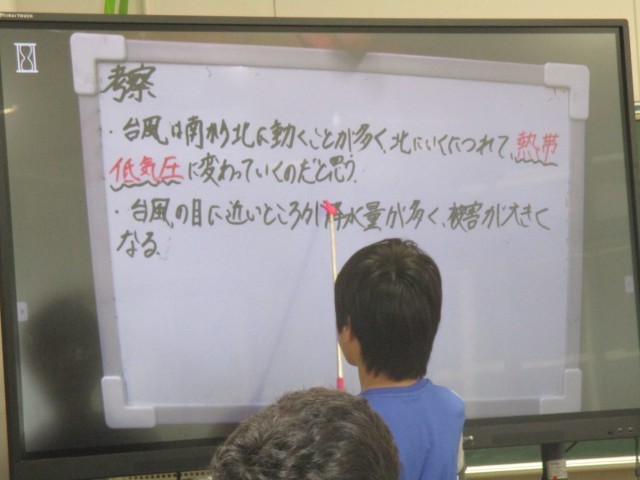 考察
・台風は南から北に動くことが多く、北にいくにつれて、熱帯
低気圧に変わっていくのだと思う。
・台風の目に近いところが降水量が多く、被害が大きく
なる。